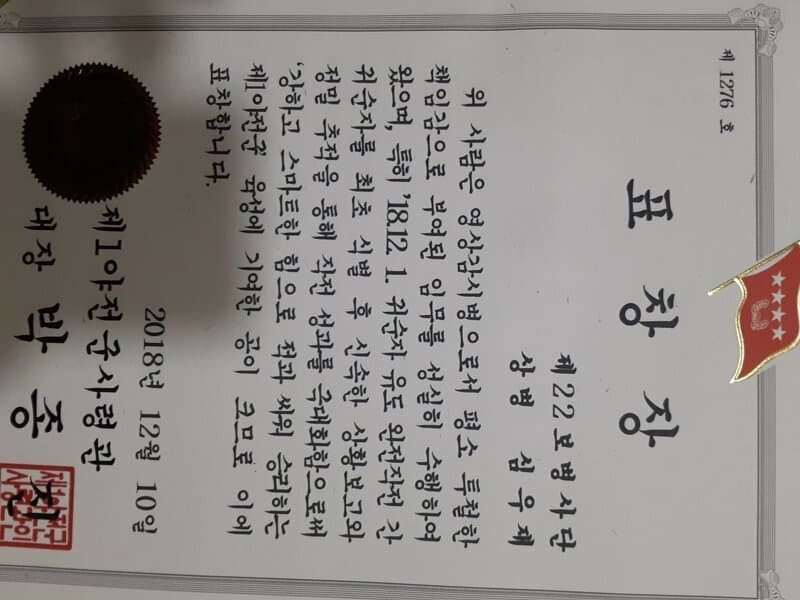 제 1276 호
표 창 장
제22보병사단
상병 심우재
위 사람은 영상감시병으로서 평소 투철한
책임감으로 부여된 임무를 성실히 수행하여
왔으며, 특히 '18.12. 1. 귀순자 유도 완전작전 간
귀순자를 최초 식별 후 신속한 상황보고와
정밀 추적을 통해 작전 성과를 극대화함으로써
'강하고 스마트한 힘으로 적과 싸워 승리하는
제1야전군' 육성에 기여한 공이 크므로 이에
표창합니다.
2018년 12월 10일
제1야전군사령관
대장 박종진